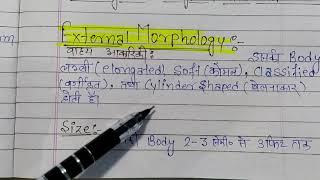 External Morphology :-
वाह्य आकारिकी :
इसकी Body
लम्बी (elongated) Soft (कोमल), Classified
(वर्गीकृत), तथा Cylinder Shaped (बेलनाकार)
होती है।
Size:-
Body 2-3 से०मी० से 3 फिट तक